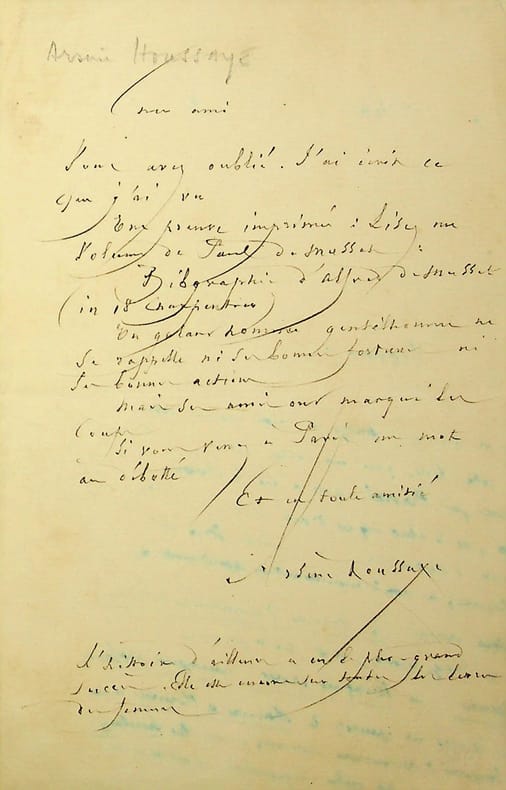 Arsène Houssaye
Cher ami
Vous avez oublié. J'ai écrit ce
que j'ai vu
Une preuve imprimée : Lisez un
Volume de Paul de Musset :
Biographie d'Alfred de Musset
(in 18 Charpentier)
Un galant homme gentilhomme ne
se rappelle ni ses bonnes fortunes ni
ses bonnes actions
Mais ses amis ont marqué les
Coups
Si vous venez à Paris un mot
au débotté
Et en toute amitié
Arsène Houssaye
L'histoire d'ailleurs a eu le plus grand
succès. Elle est encore sur toutes les lèvres
des femmes